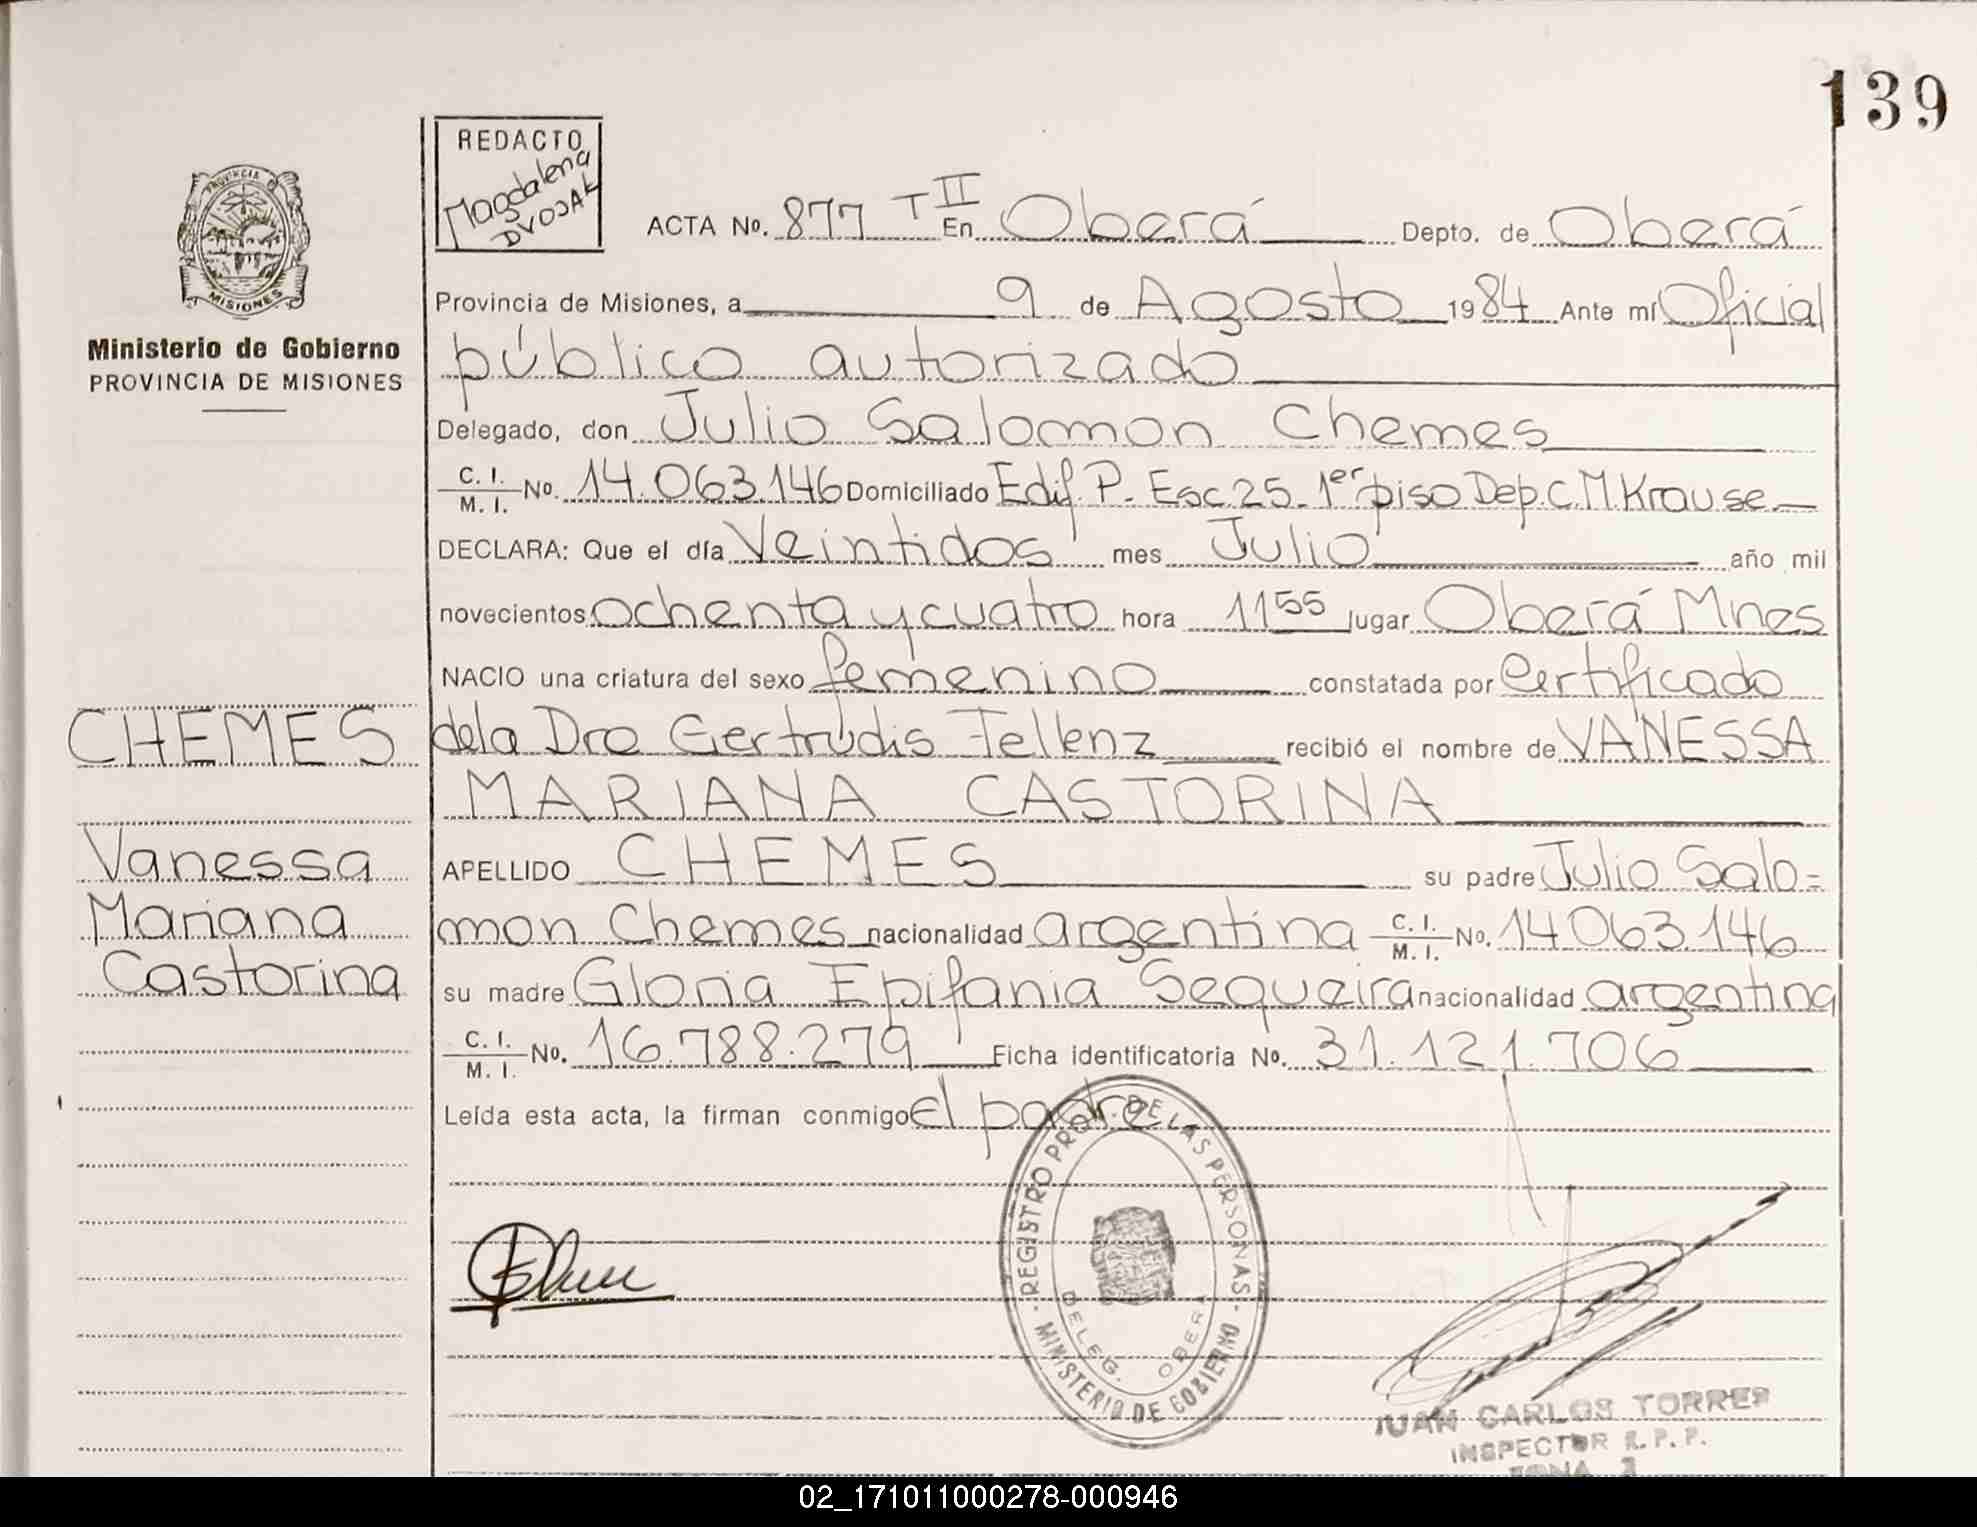 139
REDACTO
Magdalena
DVOJAK
PROVINCIA D
MISIONES
Ministerio de Gobierno
PROVINCIA DE MISIONES
ACTA No. 877 T II En Oberá Depto. de Oberá
Provincia de Misiones, a 9 de Agosto 1984 Ante mí Oficial
público autorizado
Delegado, don Julio Salomon Chemes
C. I.
M. I. No. 14.063.146 Domiciliado Edif. P. Esc. 25 - 1er piso Dep. C. M. Krause -
DECLARA: Que el día Veintidos mes Julio año mil
novecientos ochenta y cuatro hora 11 55 lugar Oberá Mnes
NACIO una criatura del sexo femenino constatada por Certificado
dela Dra Gertrudis Fellenz recibió el nombre de VANESSA
MARIANA CASTORINA
APELLIDO CHEMES su padre Julio Salo=
mon Chemes nacionalidad argentina C. I.
M. I. No. 14.063.146
su madre Gloria Epifania Sequeira nacionalidad argentina
C. I.
M. I. No. 16.788.279 Ficha identificatoria No. 31.121.706
Leída esta acta, la firman conmigo El padre
CHEMES
Vanessa
Mariana
Castorina
REGISTRO PROV. DE LAS PERSONAS
MINISTERIO DE GOBIERNO
DELEG. OBERA
JUAN CARLOS TORRES
INSPECTOR R. P. P.
ZONA 3
02_171011000278-000946